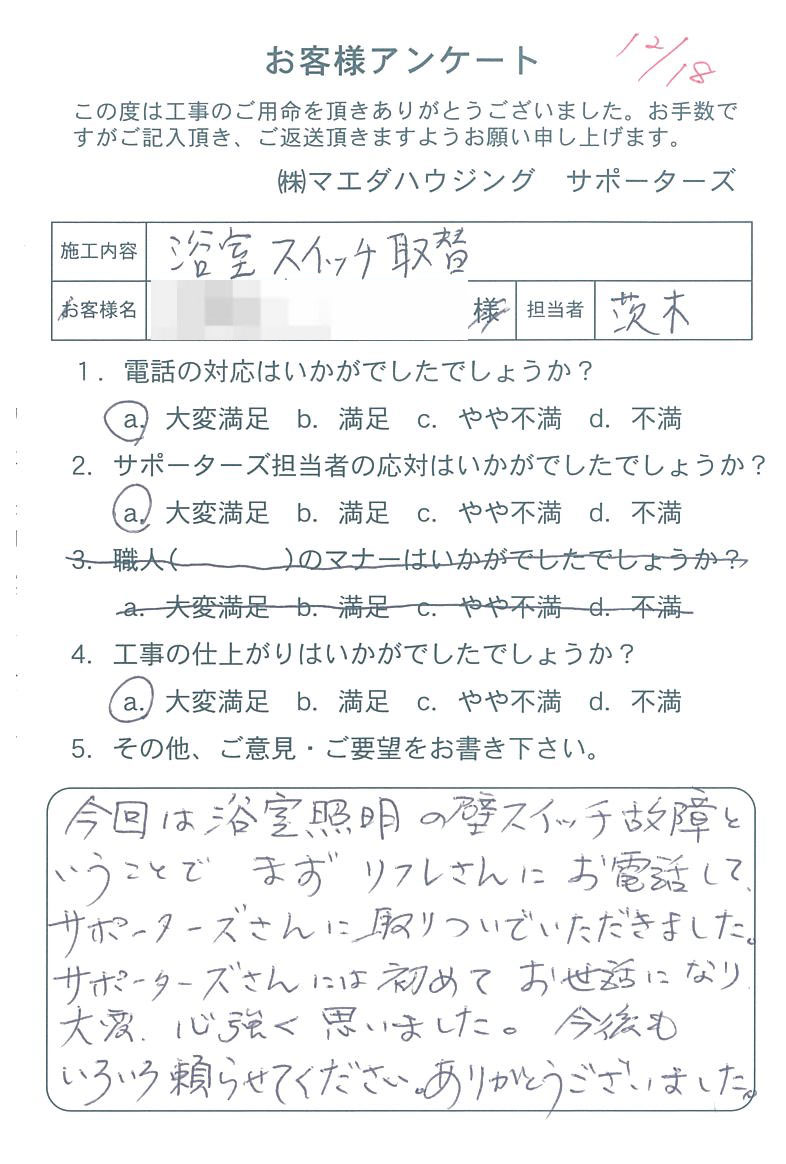 12/18
お客様アンケート
この度は工事のご用命を頂きありがとうございました。お手数で
すがご記入頂き、ご返送頂きますようお願い申し上げます。
㈱マエダハウジング　サポーターズ
施工内容 浴室スイッチ取替
お客様名 様 担当者 茨木
1. 電話の対応はいかがでしたでしょうか？
a. 大変満足 b. 満足 c. やや不満 d. 不満
2. サポーターズ担当者の応対はいかがでしたでしょうか？
a. 大変満足 b. 満足 c. やや不満 d. 不満
3. 職人( )のマナーはいかがでしたでしょうか？
a. 大変満足 b. 満足 c. やや不満 d. 不満
4. 工事の仕上がりはいかがでしたでしょうか？
a. 大変満足 b. 満足 c. やや不満 d. 不満
5. その他、ご意見・ご要望をお書き下さい。
今回は浴室照明の壁スイッチ故障と
いうことで まず リフレさんに お電話して、
サポーターズさんに取りついでいただきました。
サポーターズさんには初めて お世話になり
大変、心強く思いました。今後も
いろいろ頼らせてください。ありがとうございました。